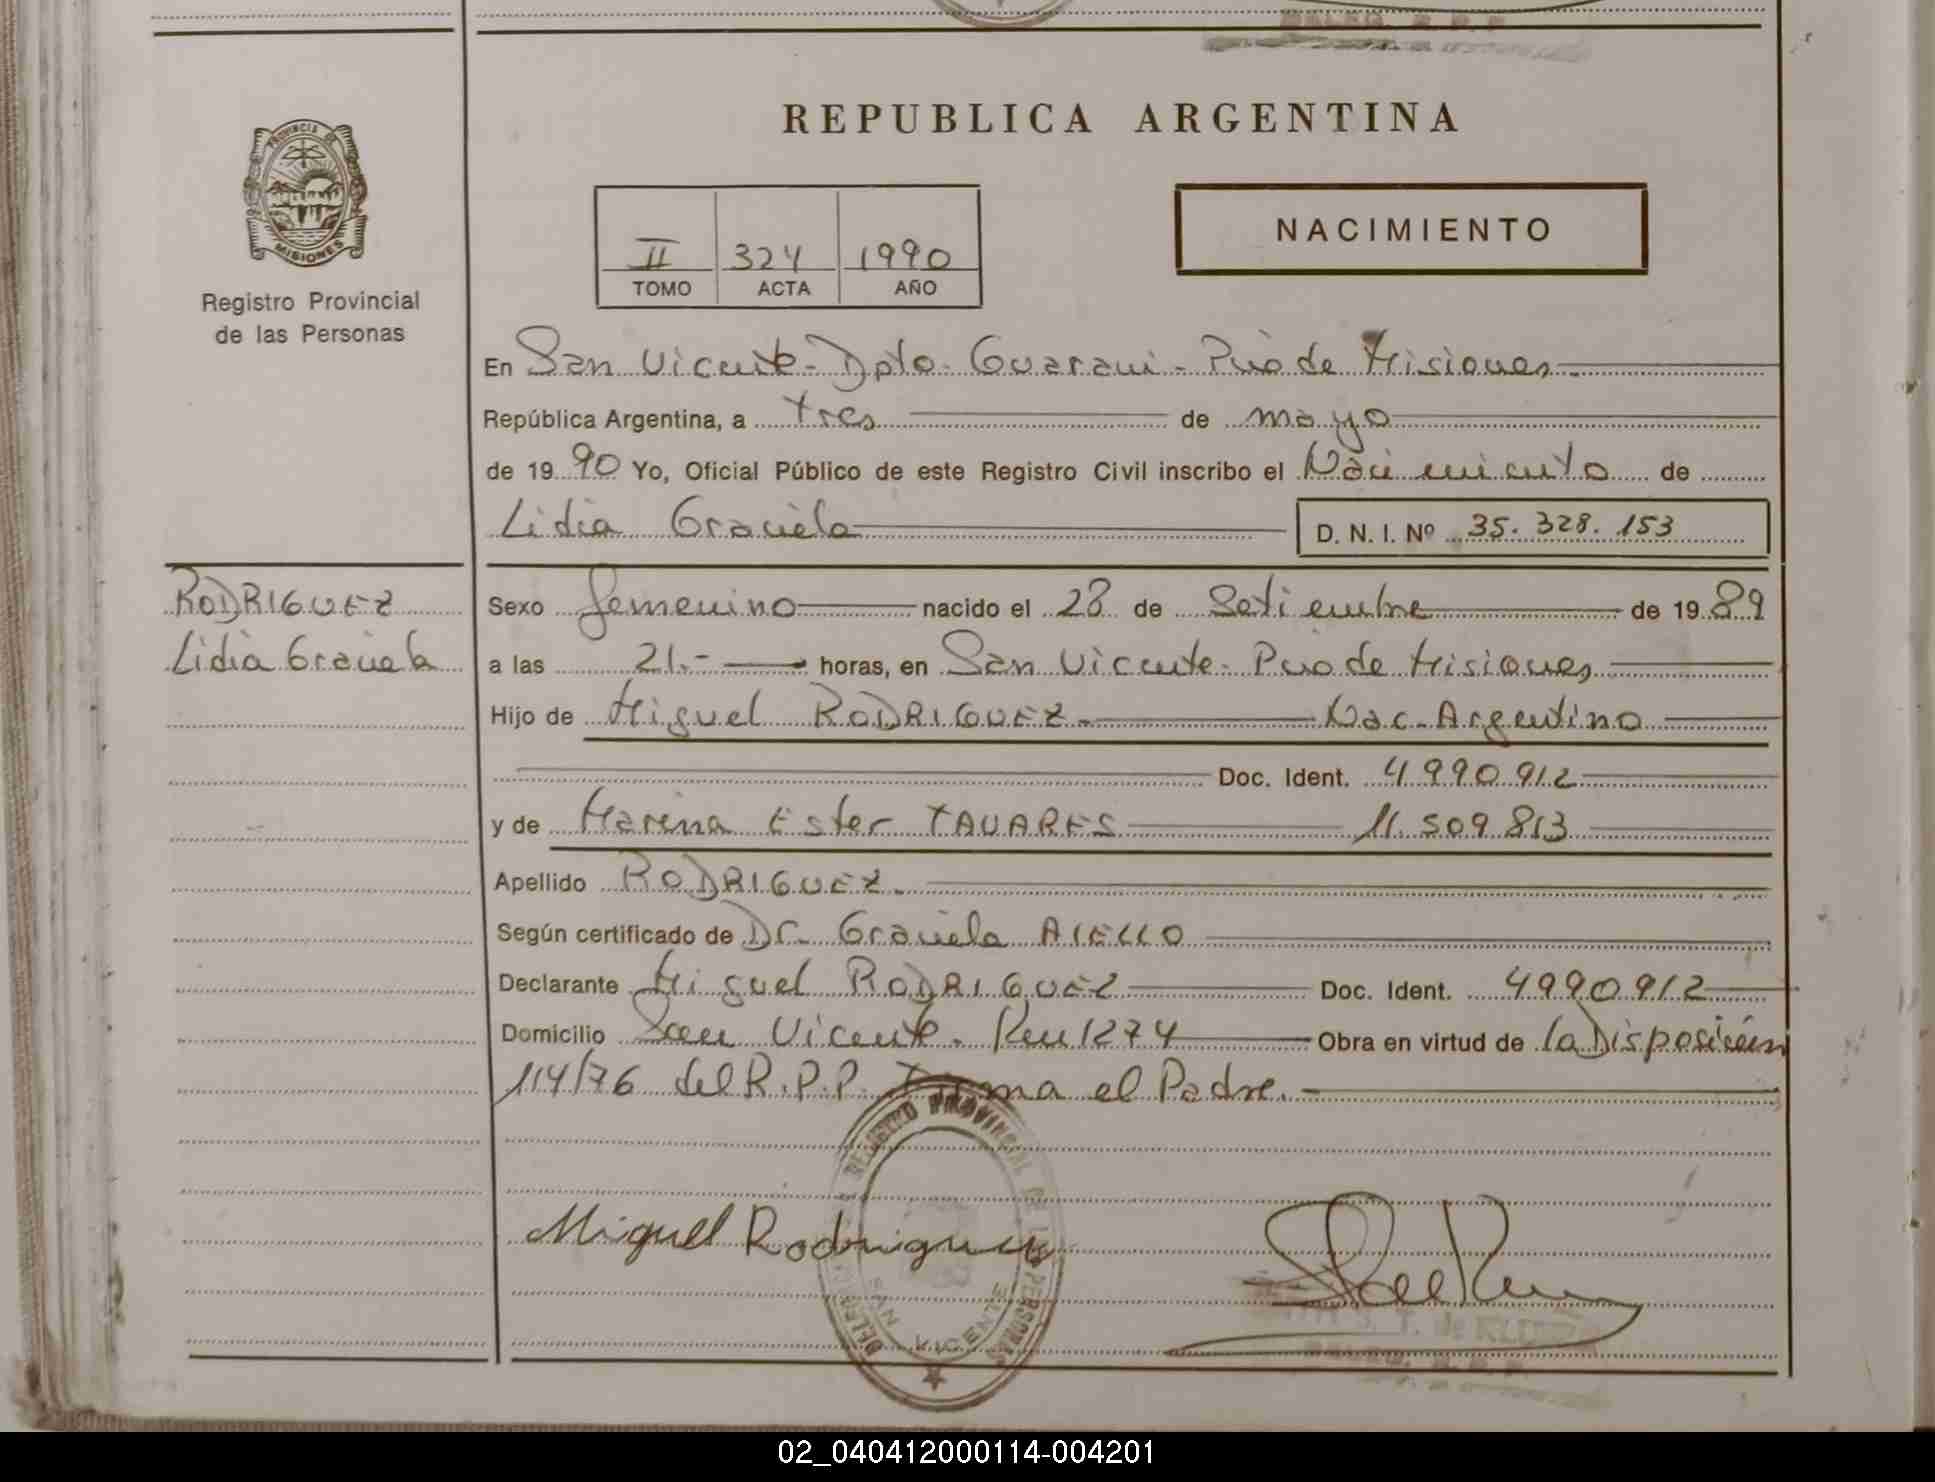 DELEG. R. P. P.
REPUBLICA ARGENTINA
PROVINCIA DE
MISIONES
Registro Provincial
de las Personas
NACIMIENTO
II 324 1990
TOMO ACTA AÑO
En San Vicente - Dpto. Guarani - Pcia de Misiones.
República Argentina, a tres de mayo
de 1990 Yo, Oficial Público de este Registro Civil inscribo el Nacimiento de
Lidia Graciela D. N. I. Nº 35.328.153
RODRIGUEZ
Lidia Graciela
Sexo femenino nacido el 28 de Setiembre de 1989
a las 21.- horas, en San Vicente. Pcia de Misiones
Hijo de Miguel RODRIGUEZ. Nac. Argentino
Doc. Ident. 4990912
y de Marina Ester TAVARES 11.509.813
Apellido RODRIGUEZ.
Según certificado de Dr. Graciela AIELLO
Declarante Miguel RODRIGUEZ Doc. Ident. 4990912
Domicilio San Vicente. Km 1274 Obra en virtud de la Disposición
114/76 del R.P.P. Firma el Padre.
REGISTRO PROVINCIAL DE LAS PERSONAS
SAN VICENTE
Miguel Rodriguez
DELEG. R. P. P.
02_040412000114-004201